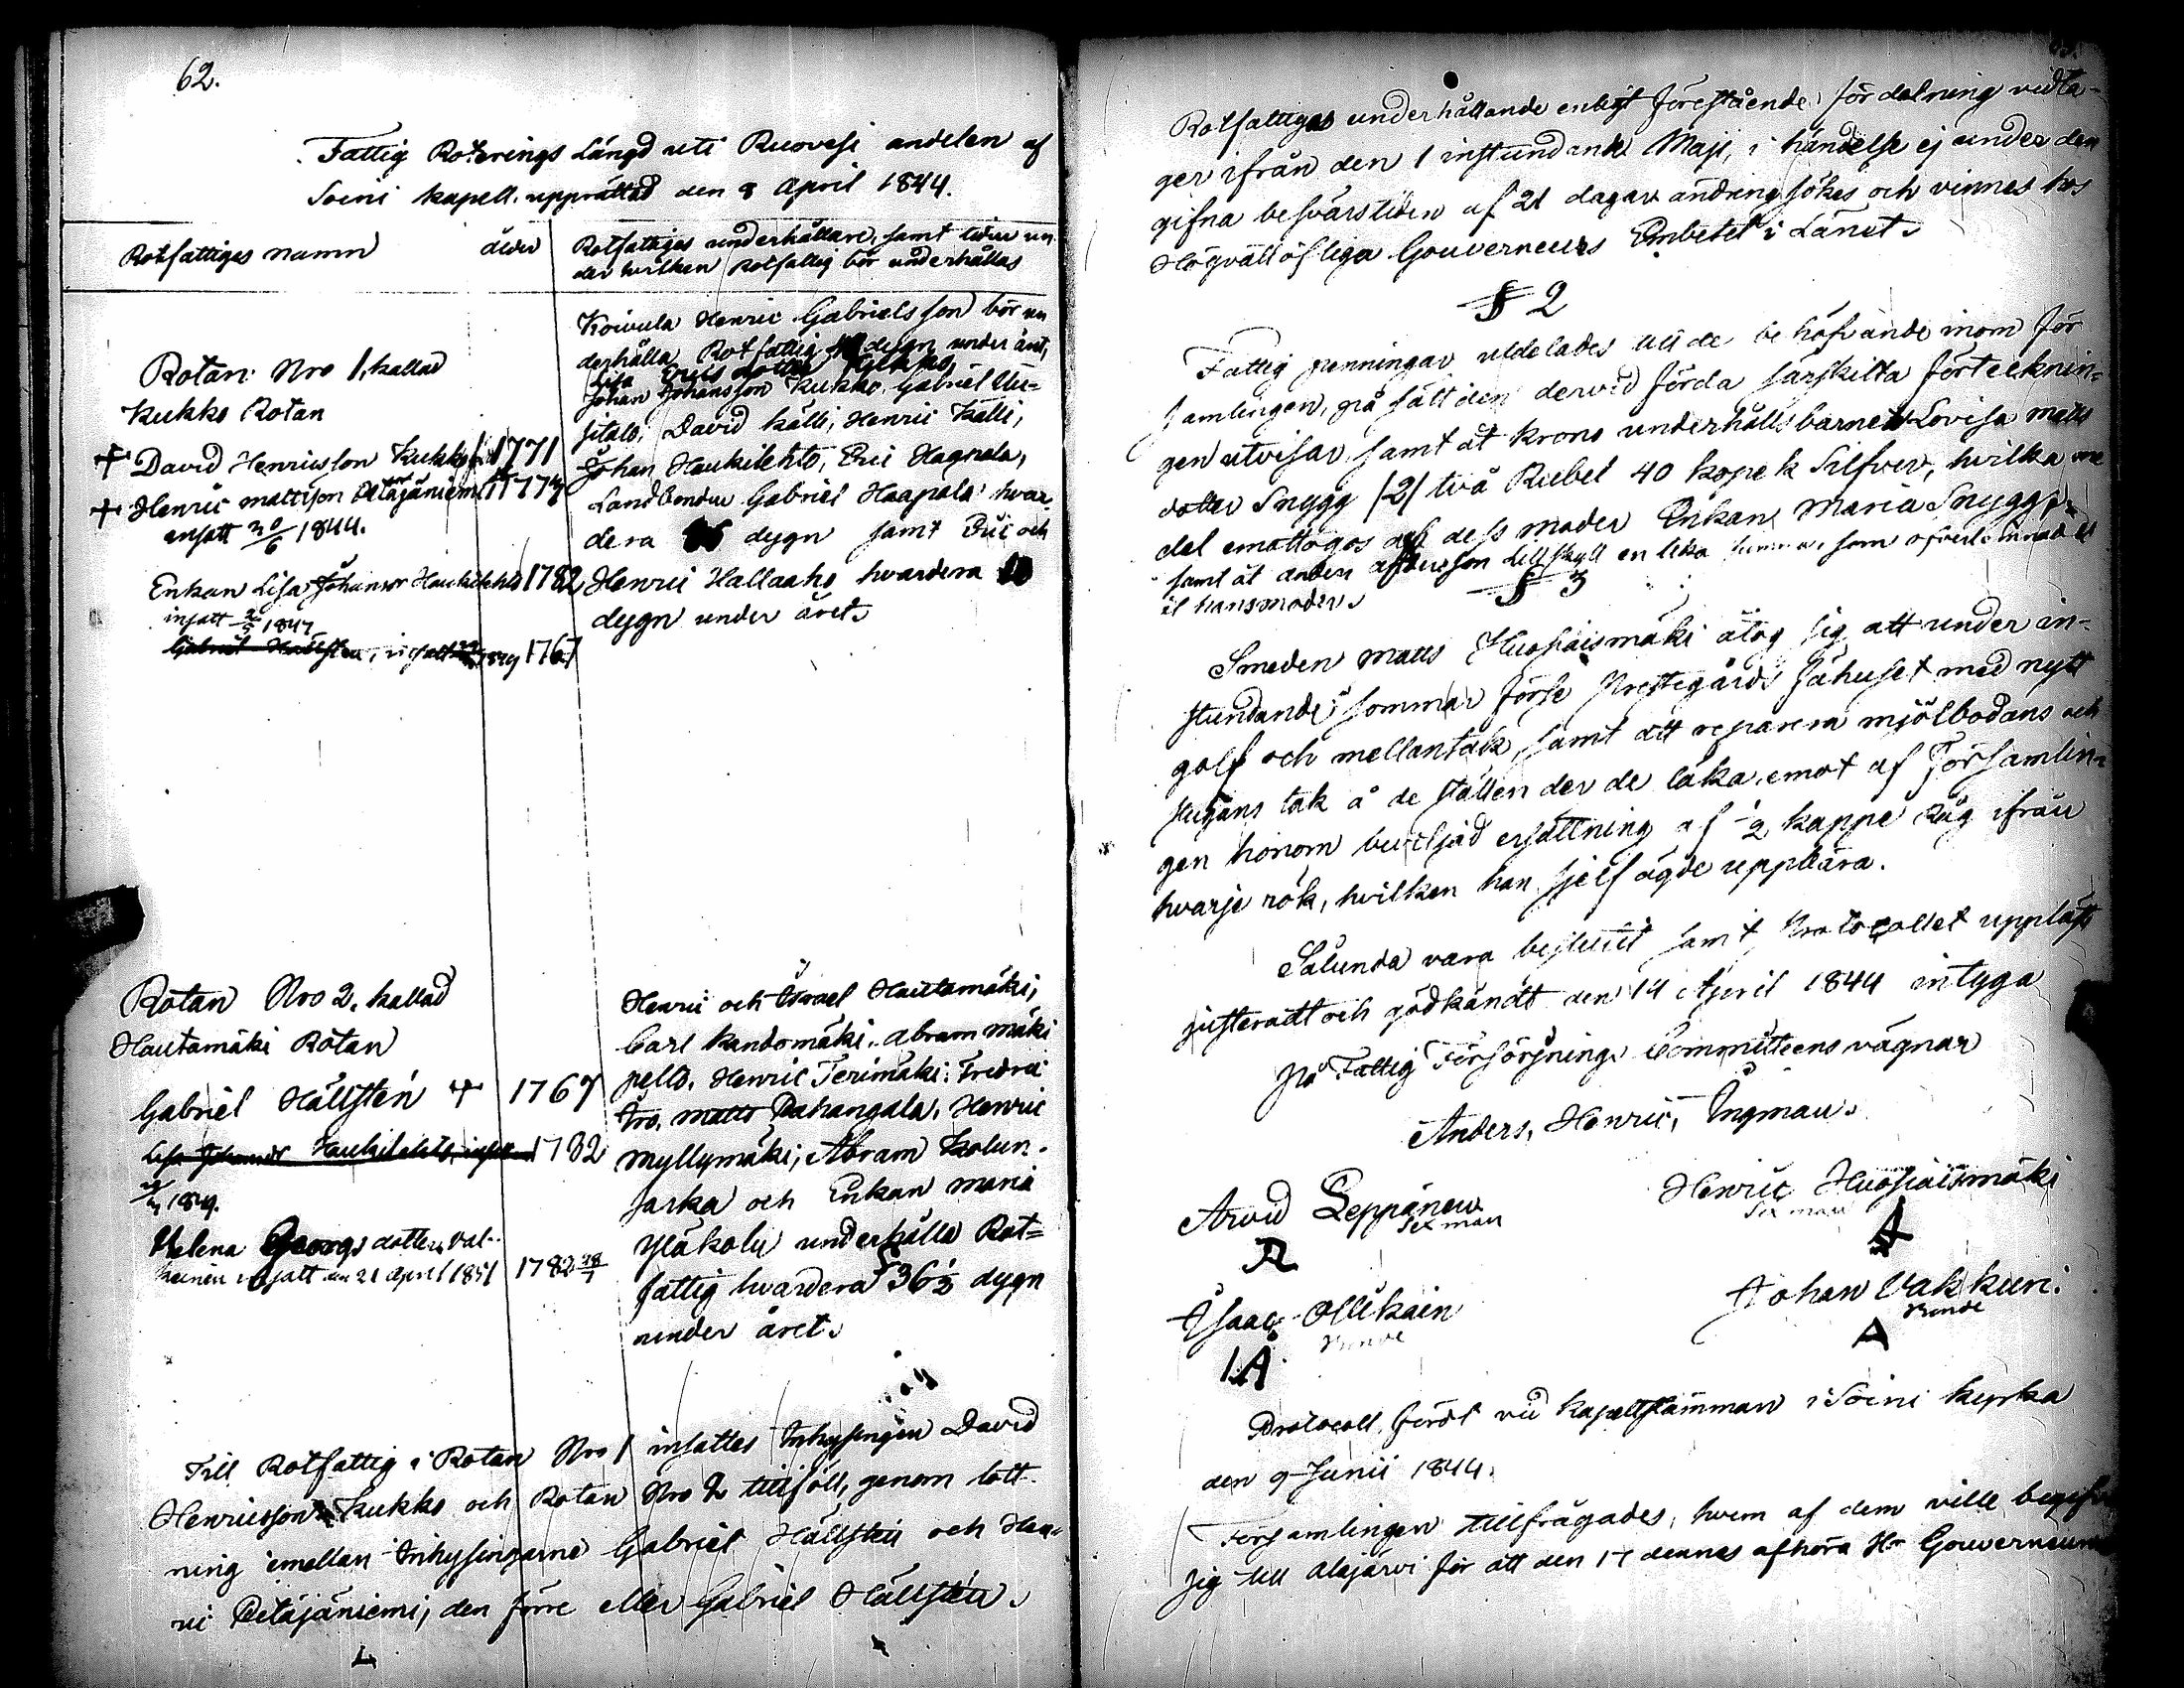 62.
Fattig Roterings Längd uti Ruovesi andelen af
Soini kapell. upprättad den 8 April 1844.
Rotfattiges namn
ålder
Rotfattiges underhållare, samt tiden un
der hvilken Rotfattig bör underhållas
Rotan Nro 1, kallad
Kukko Rotan
David Henricsson Kukko 1771
Henric Mattsson Petäjäniemi 1774
insatt 30/6 1844.
Enkan Lisa Johansdr Haukilehto 1782
insatt 2/5 1847
Gabriel Hällsten, insatt 1849 1767
Koivula Henric Gabrielsson bör un
derhålla Rotfattig dygn under året,
Lisa Ericsdotter
Johan Johansson Kukko, Gabriel Uu=
sitalo, David Källi, Henric Källi,
Johan Haukilehto, Eric Hagnala,
Landbonden Gabriel Haapala hvar
dera dygn samt Eric och
Henric Hallaaho hvardera
dygn under året.
Rotan Nro 2. kallad
Hautamäki Rotan
Gabriel Hällstén 1767
Lisa Johansdr Haukilehto, insatt 1782
1849.
Helena Georgsdotter Val-
keinen insatt den 21 April 1851 1782 28/7
Henric och Israel Hautamäki,
Carl Kandomäki. Abram Mäki
pelto. Henric Terimäki. Fredric
Aro. Matts Pahangala, Henric
Myllymäki, Abram Kolun-
sarka och Enkan Maria
Yläkolu underhålla Rot=
fattig hvardera 36½ dygn
under året.
Till Rotfattig i Rotan Nro 1 insattes Inhysingen David
Henricsson Kukko och Rotan Nro 2 tillföll, genom lott-
ning emellan Inhysingarne Gabriel Hällstén och Hen-
ric Petäjäniemi, den förre eller Gabriel Hällstén.
Rotfattigas underhållande enligt förestående fördelning vidta-
ger ifrån den 1 instundande Maji, i händelse ej under den
gifna besvärstiden af 21 dagar ändring sökes och vinnes hos
Högvällofliga Gouverneurs Embetet i Länet.
§ 2
Fattig penningar utdelades till de behöfvande inom för
samlingen, på sätt den dervid förda särskilta förtecknin=
gen utvisar, samt åt krono underhålls barnet Lovisa Matts
dotter Snygg /2/ två Rubel 40 kopek Silfver, hvilka me
del emottogos af dess moder Enkan Maria Snygg,
samt åt anders andersson Lillskytt en lika summa, som öfverlemnades
åt hans moder.
§ 3
Smeden Matts Huosiaismäki åtog sig att under in-
stundande sommar förse Prestegårds fähuset med nytt
golf och mellantak, samt att reparera mjölbodans och
stugans tak å de ställen der de läka, emot af Församlin-
gen honom beviljad ersättning af ½ kappe Råg ifrån
hvarje rök, hvilken han sjelf ägde uppbära.
Sålunda vara beslutit samt Protocollet uppläst
justeradt och godkändt den 14 April 1844 intyga
På Fattig Försörjnings Committeens vägnar
Anders, Henric, Ingman.
Arvid Leppänen
Sexman
Henric Huosiaismäki
Sexman
Isaac Ollikain
Bonde
IA
Johan Vakkuri.
Bonde
A
Protocoll, fördt vid kapellstämman i Soini kyrka
den 9 Junii 1844.
Församlingen tillfrågades, hvem af dem ville begifva
sig till Alajärvi för att den 17 dennes afhöra Hr Gouverneurn